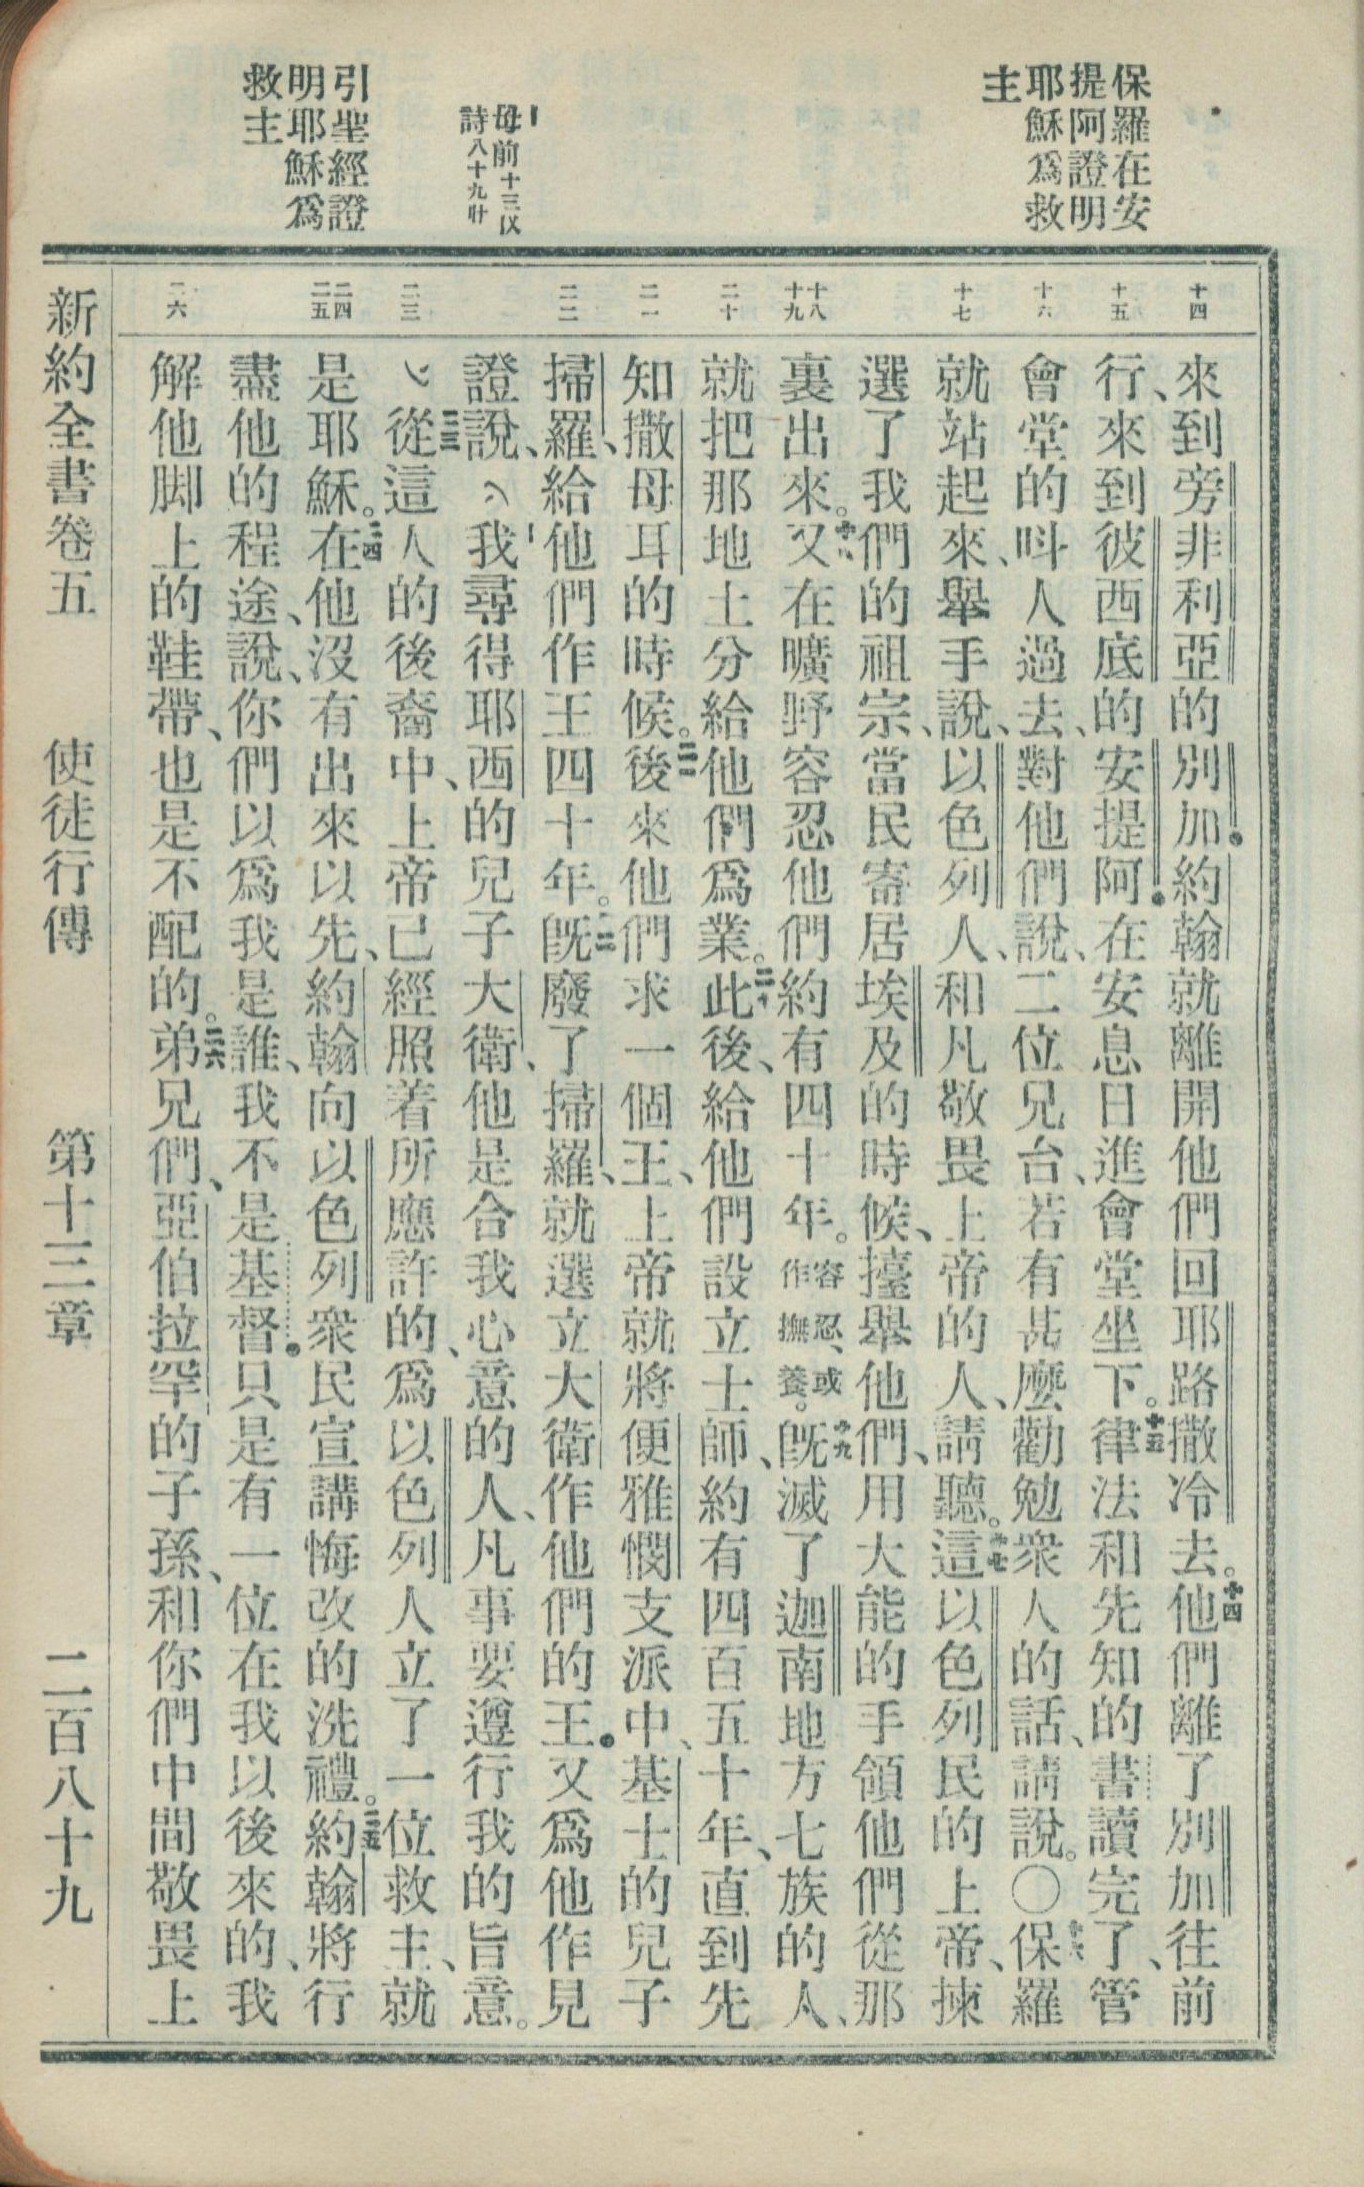 保羅在安
提阿證明
耶穌爲救
主
母前十三
詩八十九廿
引聖經證
明耶穌爲
救主
十四
十五
十六
十七
十八
十九
二十
二一
二二
二三
二四
二五
二六
來到旁非利亞的別加．約翰就離開他們回耶路撒冷去。十四他們離了別加往前
行、來到彼西底的安提阿．在安息日進會堂坐下。十五律法和先知的書讀完了、管
會堂的叫人過去、對他們說、二位兄台、若有甚麼勸勉衆人的話、請說。〇十六保羅
就站起來、舉手說、以色列人、和凡敬畏上帝的人、請聽。十七這以色列民的上帝、揀
選了我們的祖宗、當民寄居埃及的時候、擡舉他們、用大能的手領他們從那
裏出來。十八又在曠野容忍他們約有四十年。容忍、或作撫養。十九旣滅了迦南地方七族的人、
就把那地土分給他們爲業。二十此後、給他們設立士師、約有四百五十年、直到先
知撒母耳的時候。二一後來他們求一個王、上帝就將便雅憫支派中、基士的兒子
掃羅、給他們作王四十年。二二旣廢了掃羅、就選立大衛作他們的王．又爲他作見
證說、（我尋得耶西的兒子大衛、他是合我心意的人、凡事要遵行我的旨意。
）二三從這人的後裔中、上帝已經照着所應許的、爲以色列人立了一位救主、就
是耶穌。二四在他沒有出來以先、約翰向以色列衆民宣講悔改的洗禮。二五約翰將行
盡他的程途、說、你們以爲我是誰、我不是基督．只是有一位在我以後來的、我
解他脚上的鞋帶、也是不配的。二六弟兄們、亞伯拉罕的子孫、和你們中間敬畏上
新約全書卷五 使徒行傳 第十三章 二百八十九